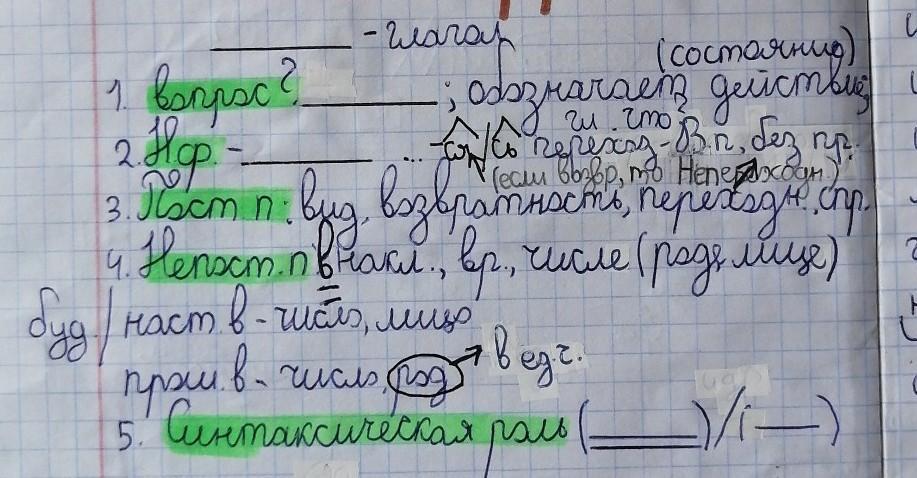 ______ - глагол
(состояние)
1. вопрос? ______ ; обозначает действие,
гл. что?
2. Н.ф. - ______ ... -ся/сь переход - В.п., без пр.
(если возвр, то Непереходн.)
3. Пост п: вид, возвратность, переходн., спр.
4. Непост. п в накл., вр., числе (роде, лице)
буд/наст. в - число, лицо
прош. в - число, род → в ед.ч.
5. Синтаксическая роль (______)/(___)